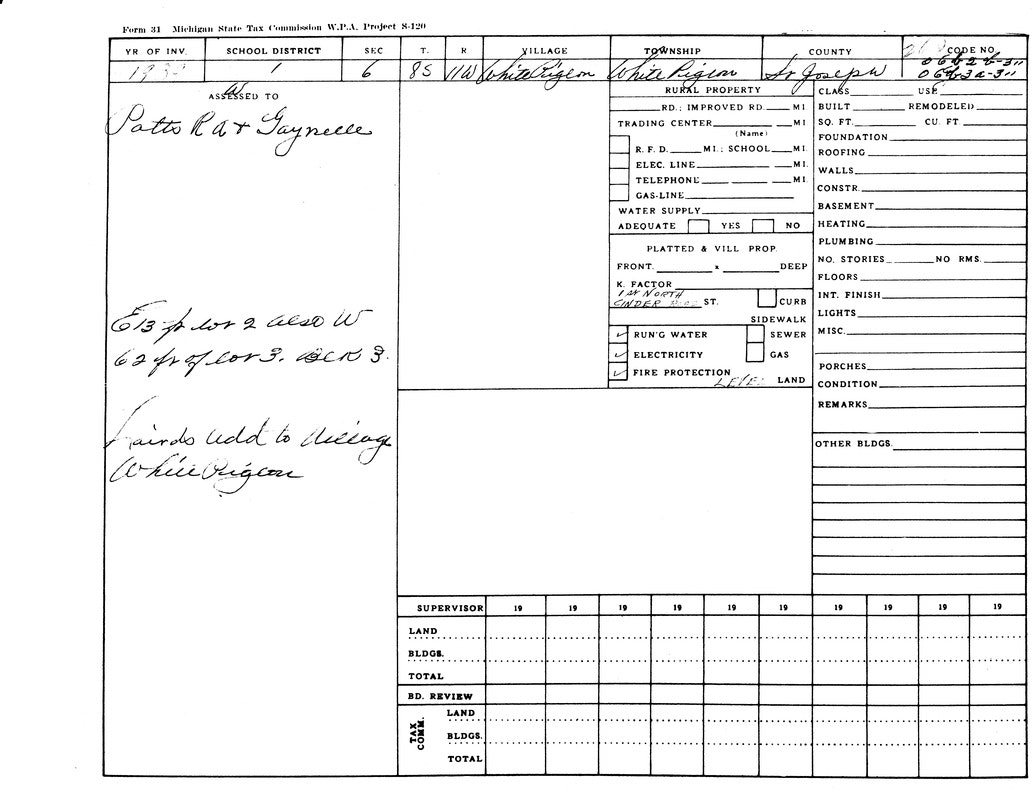 Form 31 Michigan State Tax Commission W.P.A. Project S-120
YR OF INV. SCHOOL DISTRICT SEC T. R VILLAGE TOWNSHIP COUNTY CODE NO
1 6 8S 11W White Pigeon White Pigeon St Joseph
ASSESSED TO
Potts R A & Gaynelle
E 13 ft lot 2 also W
62 ft of lot 3. BLK 3.
Lairds Add to Village
White Pigeon
RURAL PROPERTY
RD.; IMPROVED RD. MI.
TRADING CENTER MI.
(Name)
R. F. D. MI.; SCHOOL MI.
ELEC. LINE MI.
TELEPHONE MI.
GAS-LINE
WATER SUPPLY
ADEQUATE YES NO
PLATTED & VILL PROP.
FRONT. x DEEP
K. FACTOR
1 St NORTH
CINDER ST. CURB
SIDEWALK
✓ RUN'G WATER SEWER
✓ ELECTRICITY GAS
✓ FIRE PROTECTION
LEVEL LAND
CLASS USE
BUILT REMODELED
SQ. FT. CU. FT.
FOUNDATION
ROOFING
WALLS
CONSTR.
BASEMENT
HEATING
PLUMBING
NO. STORIES NO RMS.
FLOORS
INT. FINISH
LIGHTS
MISC.
PORCHES
CONDITION
REMARKS
OTHER BLDGS.
SUPERVISOR 19 19 19 19 19 19 19 19 19 19
LAND
BLDGS.
TOTAL
BD. REVIEW
TAX COMM.
LAND
BLDGS.
TOTAL